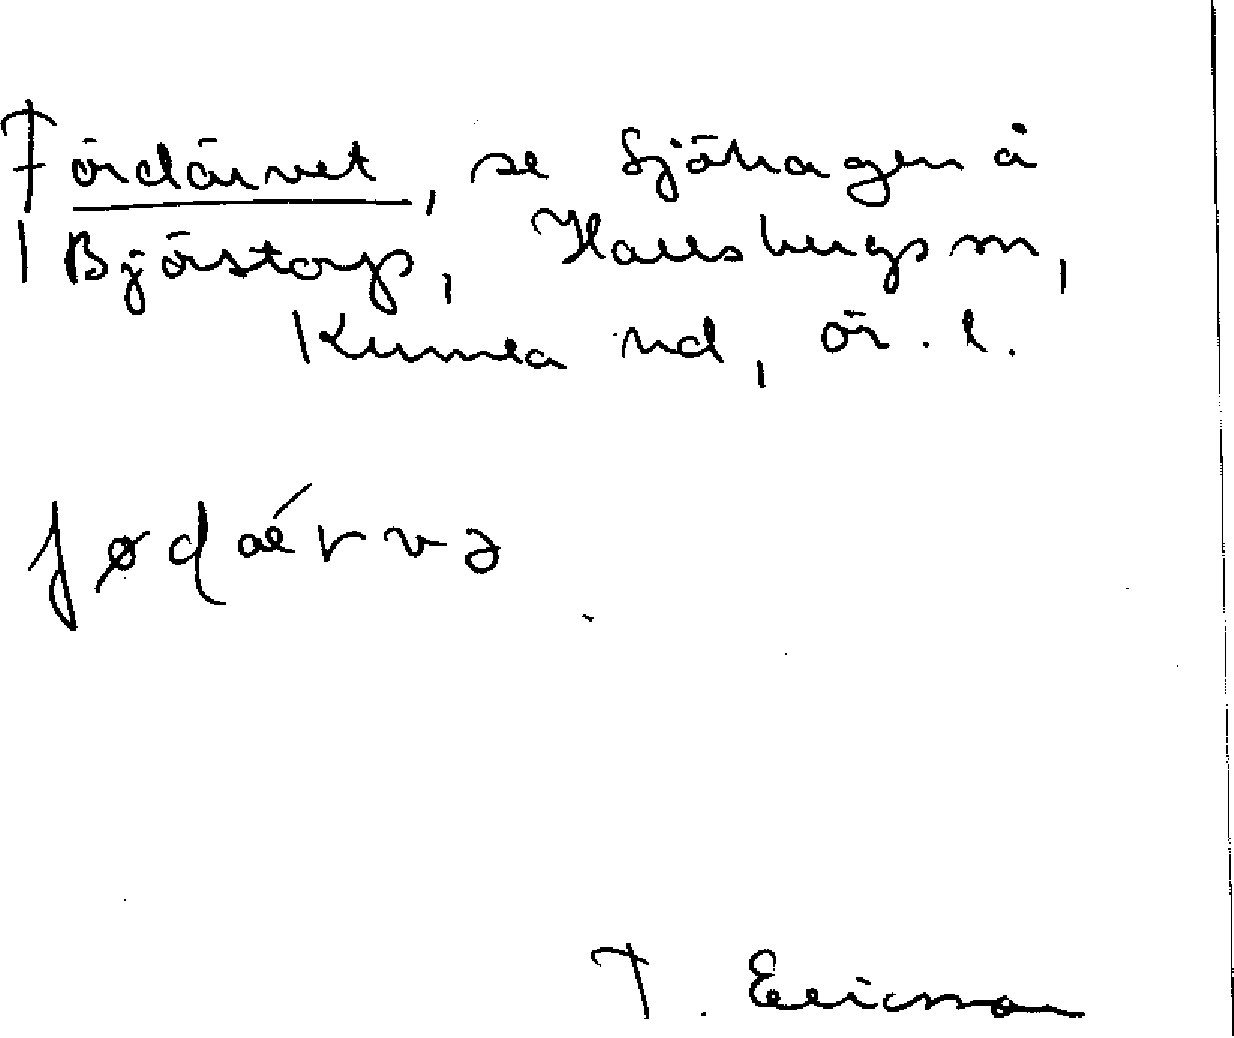 Fördärvet, se Sjöhagen å
Björstorp, Hallsbergs sn,
Kumla hd, ör. l.
fødǽrvə
T. Ericsson